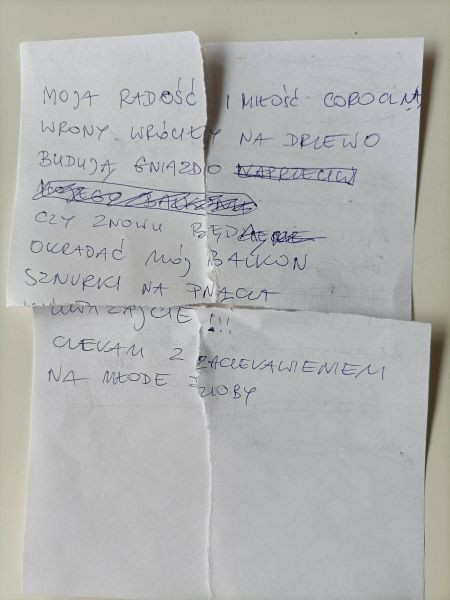 MOJA RADOŚĆ I MIŁOŚĆ COROCZNA
WRONY WRÓCIŁY NA DRZEWO
BUDUJĄ GNIAZDO NAPRZECIW
MOJEGO BALKONU
CZY ZNOWU
OKRADAĆ MÓJ BALKON
SZNURKI NA PNĄCZA
UWAŻAJCIE !!!
CZEKAM Z ZACIEKAWIENIEM
NA MŁODE